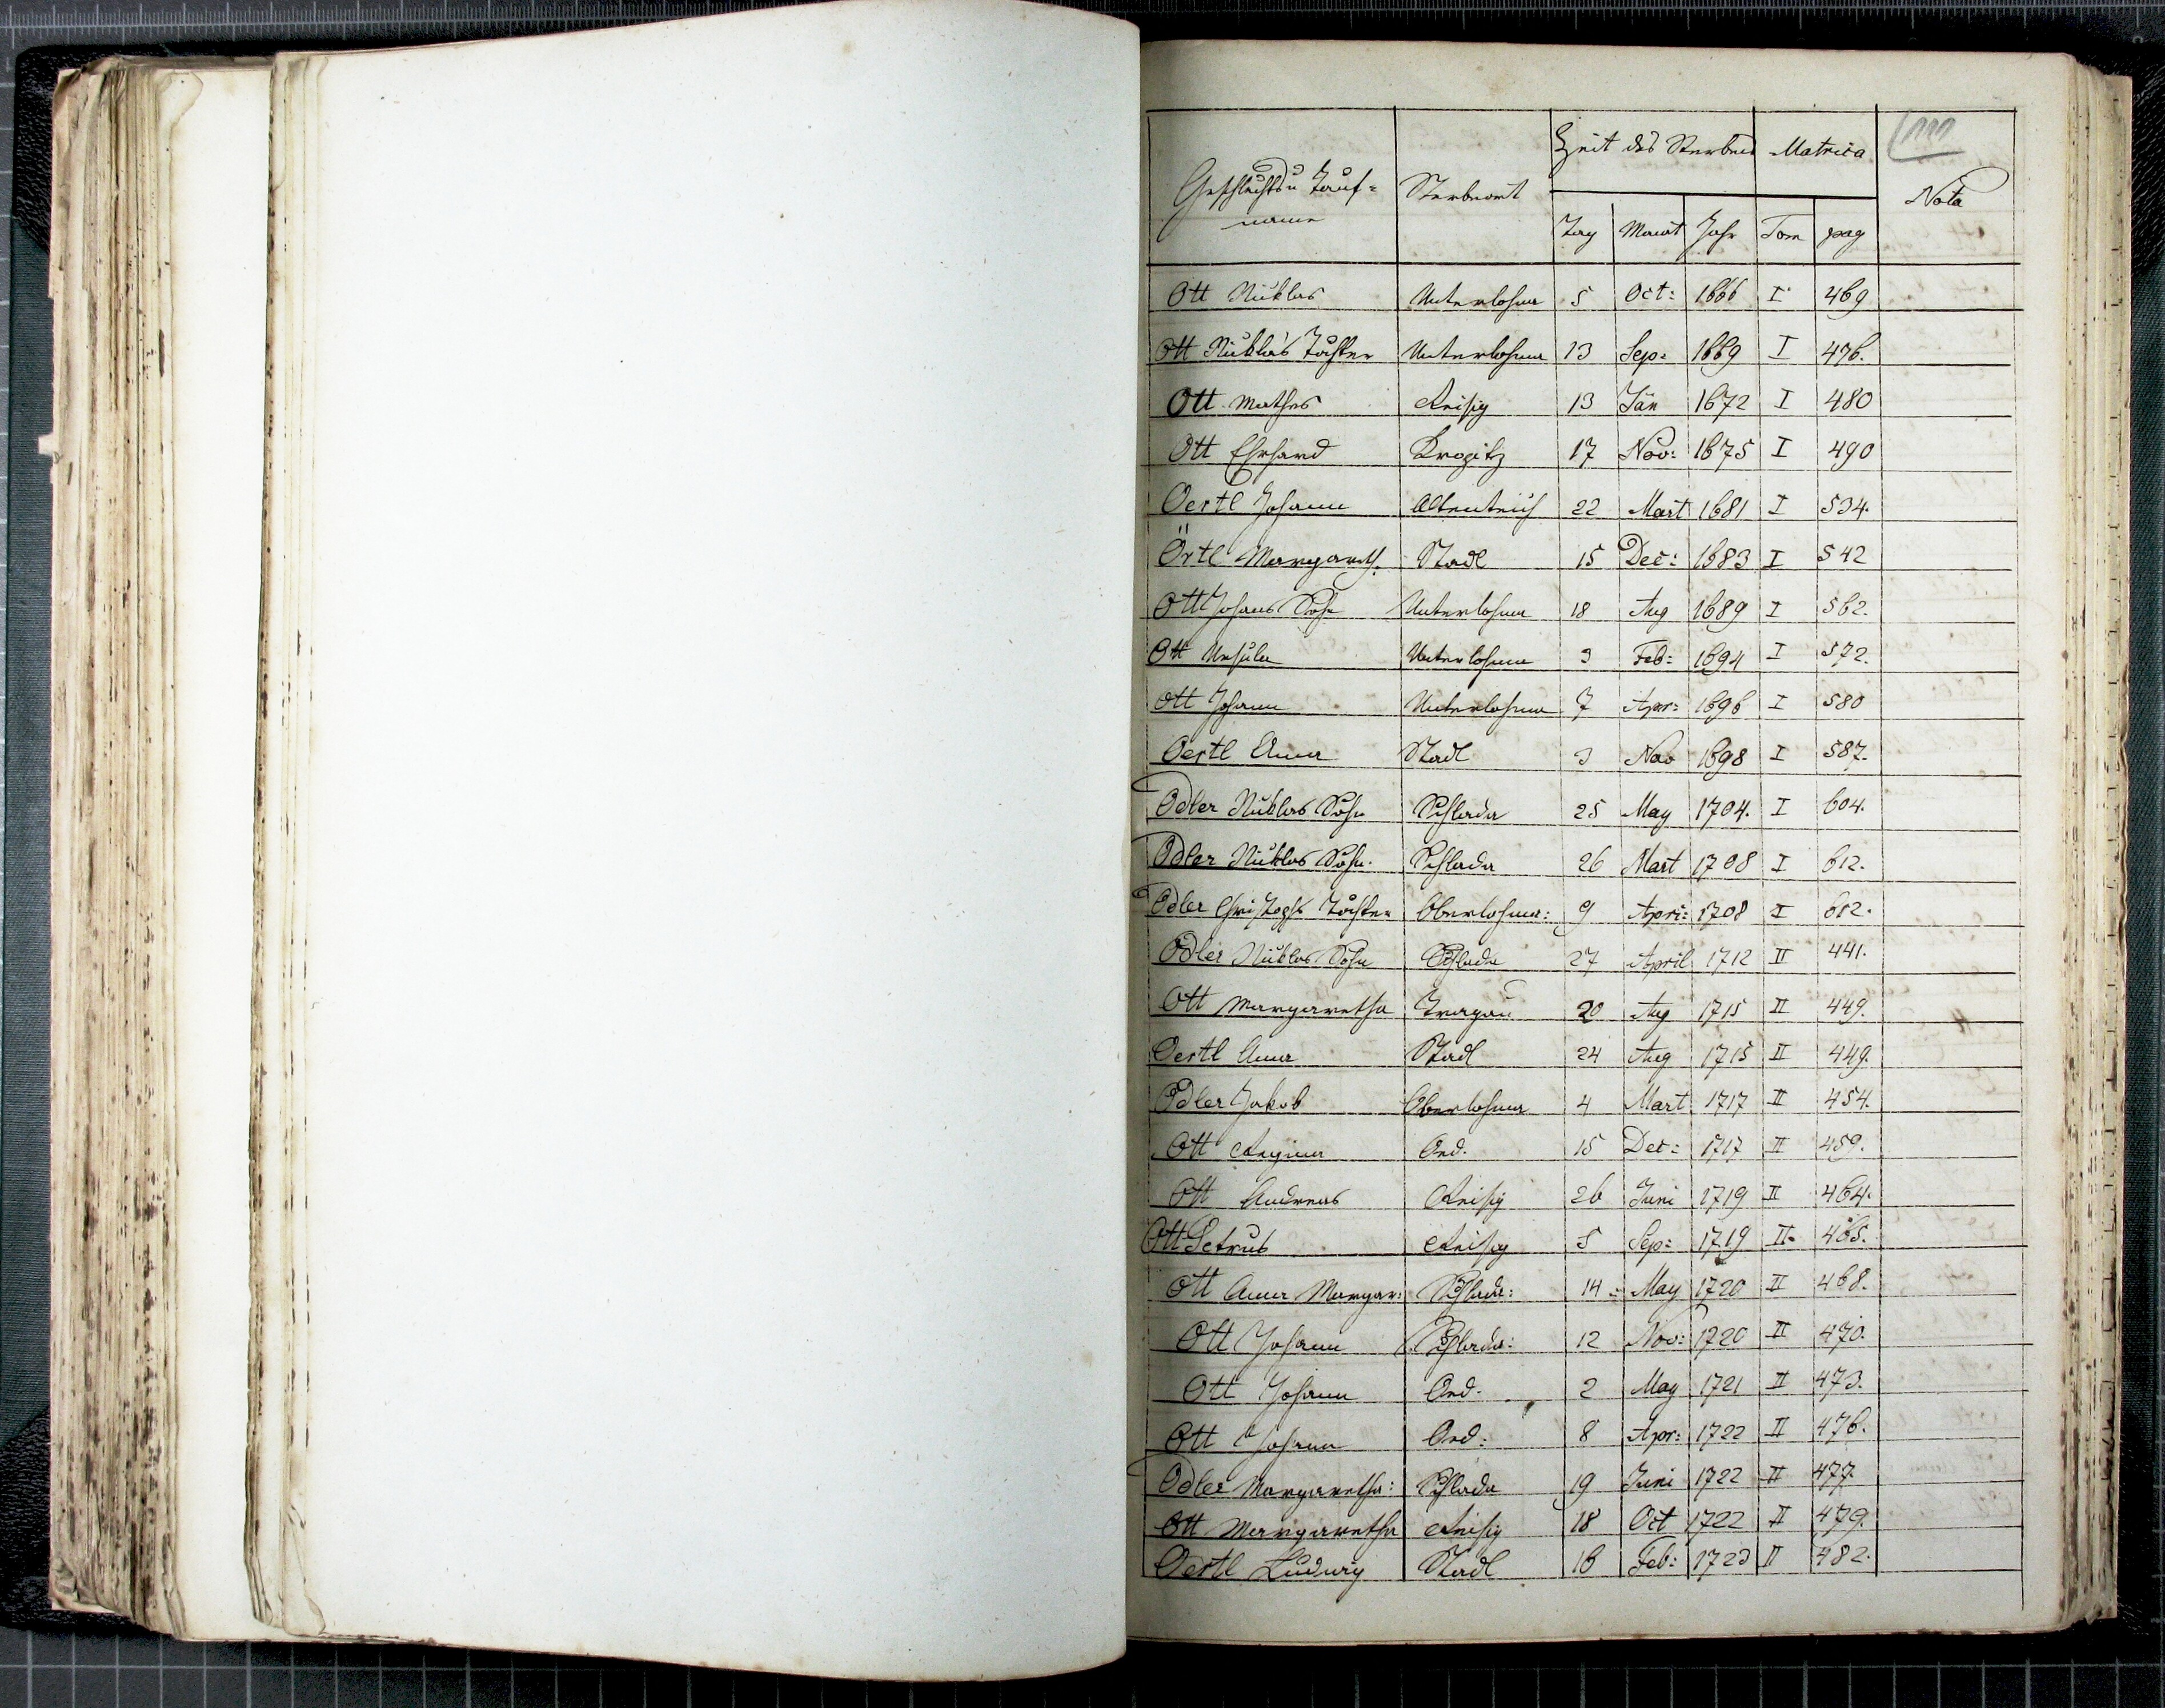 111
Geschlechts u Tauf=
name
Sterbeort
Zeit des Sterbens
Matrica
Nota
Tag Monat Jahr Tom pag
Ott Niklas Unterlohma 5 Oct: 1666 I 469
Ott Niklas Tochter Unterlohma 13 Sep: 1669 I 476.
Ott Mathes Reisig 13 Jän 1672 I 480
Ott Ehrhard Kropitz 17 Nov: 1675 I 490
Oertl Johann Altenteich 22 Mart 1681 I 534.
Örtl Margareth. Stadl 15 Dec: 1683 I 542
Ott Johans Sohn Unterlohma 18 Aug 1689 I 562.
Ott Ursula Unterlohma 3 Feb: 1694 I 572.
Ott Johann Unterlohma 7 Apr: 1696 I 580
Oertl Anna Stadl 3 Nov 1698 I 587.
Odler Niklas Sohn Schlada 25 May 1704. I 604.
Odler Niklas Sohn. Schlada 26 Mart 1708 I 612.
Odler Christoph Tochter Oberlohma: 9 Apri: 1708 I 612.
Odler Niklas Sohn Schlada 27 April 1712 II 441.
Ott Margaretha Tragau 20 Aug 1715 II 449.
Oertl Anna Stadl 24 Aug 1715 II 449.
Odler Jakob Oberlohma 4 Mart 1717 II 454.
Ott Regina Oed. 15 Dec: 1717 II 459.
Ott Andreas Reisig 26 Juni 1719 II 464.
Ott Petrus Reisig 5 Sep: 1719 II 465.
Ott Anna Margar: Schlada: 14 May 1720 II 468.
Ott Johann Schlada: 12 Nov: 1720 II 470.
Ott Johann Oed. 2 May 1721 II 473.
Ott Johann Oed: 8 Apr: 1722 II 476.
Odler Margaretha: Schlada 19 Juni 1722 II 477.
Ott Margaretha Reisig 18 Oct 1722 II 479.
Oertl Ludwig Stadl 16 Feb: 1723 II 482.